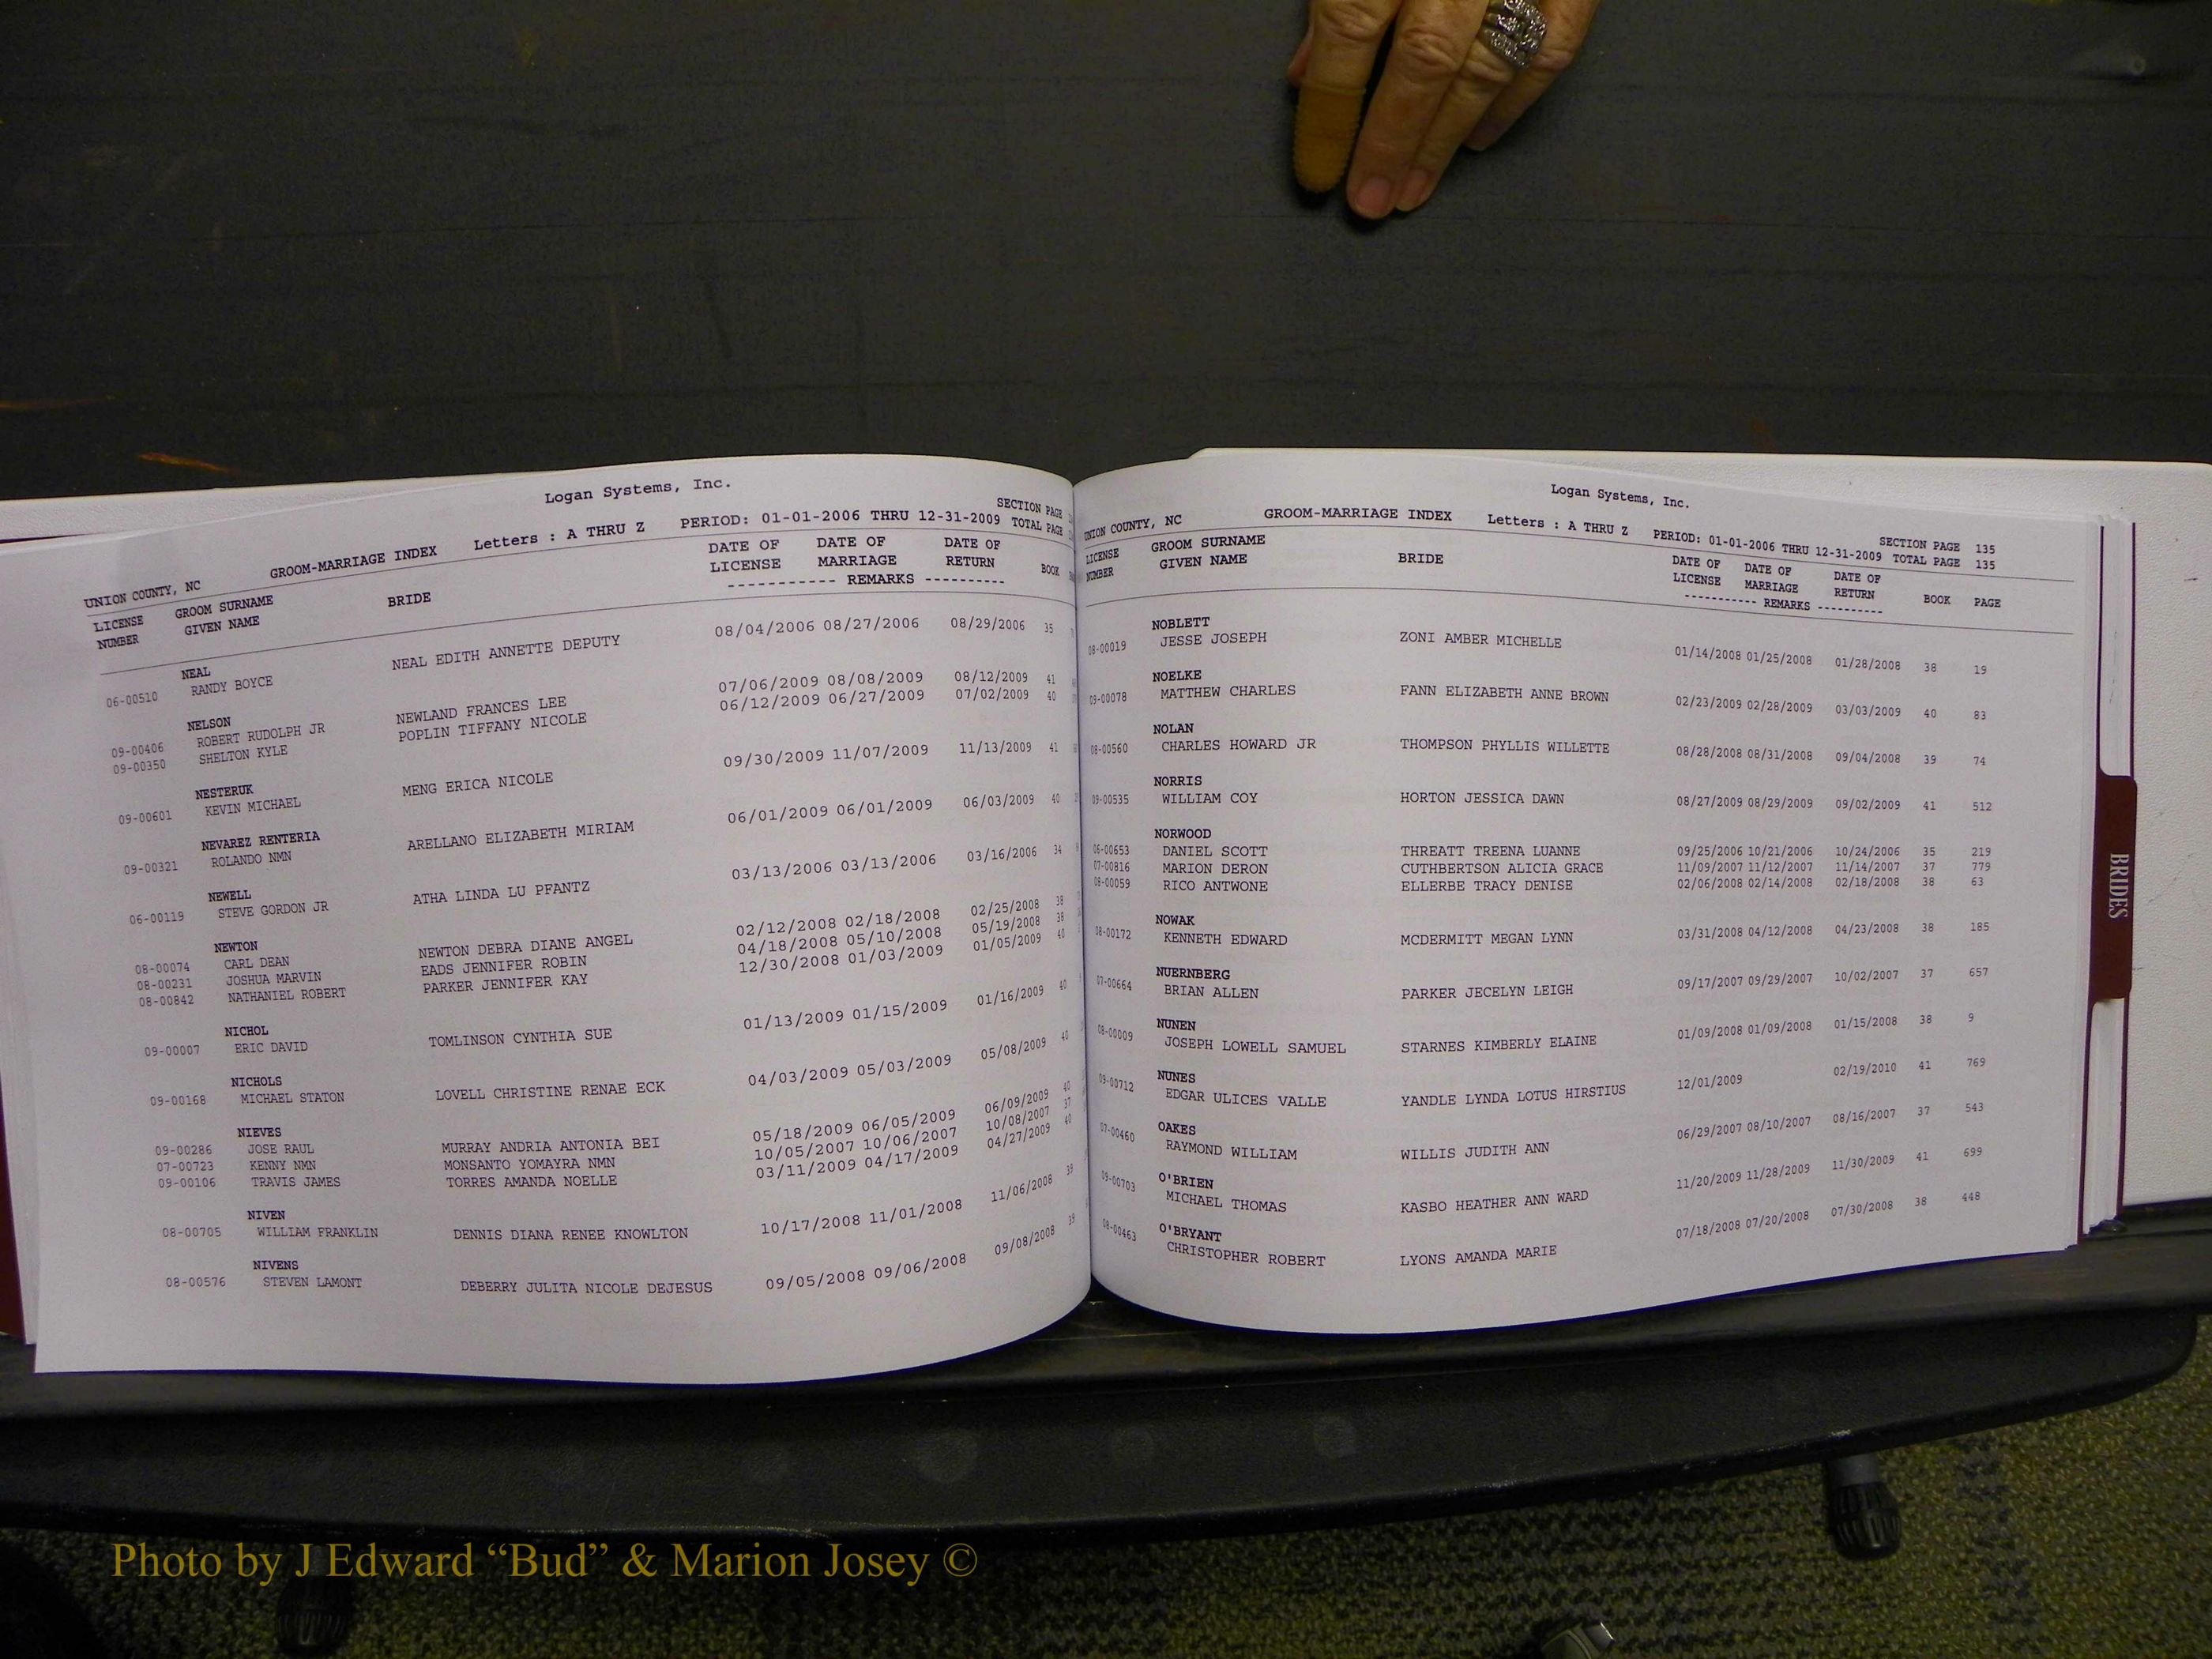 Logan Systems, Inc.
UNION COUNTY, NC GROOM-MARRIAGE INDEX Letters : A THRU Z PERIOD: 01-01-2006 THRU 12-31-2009 SECTION PAGE
TOTAL PAGE
LICENSE NUMBER GROOM SURNAME GIVEN NAME BRIDE DATE OF LICENSE DATE OF MARRIAGE DATE OF RETURN BOOK
------------ REMARKS ----------
NEAL
06-00510 RANDY BOYCE NEAL EDITH ANNETTE DEPUTY 08/04/2006 08/27/2006 08/29/2006 35
NELSON
09-00406 ROBERT RUDOLPH JR NEWLAND FRANCES LEE 07/06/2009 08/08/2009 08/12/2009 41
09-00350 SHELTON KYLE POPLIN TIFFANY NICOLE 06/12/2009 06/27/2009 07/02/2009 40
NESTERUK
09-00601 KEVIN MICHAEL MENG ERICA NICOLE 09/30/2009 11/07/2009 11/13/2009 41
NEVAREZ RENTERIA
09-00321 ROLANDO NMN ARELLANO ELIZABETH MIRIAM 06/01/2009 06/01/2009 06/03/2009 40
NEWELL
06-00119 STEVE GORDON JR ATHA LINDA LU PFANTZ 03/13/2006 03/13/2006 03/16/2006 34
NEWTON
08-00074 CARL DEAN NEWTON DEBRA DIANE ANGEL 02/12/2008 02/18/2008 02/25/2008 38
08-00231 JOSHUA MARVIN EADS JENNIFER ROBIN 04/18/2008 05/10/2008 05/19/2008 38
08-00842 NATHANIEL ROBERT PARKER JENNIFER KAY 12/30/2008 01/03/2009 01/05/2009 40
NICHOL
09-00007 ERIC DAVID TOMLINSON CYNTHIA SUE 01/13/2009 01/15/2009 01/16/2009 40
NICHOLS
09-00168 MICHAEL STATON LOVELL CHRISTINE RENAE ECK 04/03/2009 05/03/2009 05/08/2009 40
NIEVES
09-00286 JOSE RAUL MURRAY ANDRIA ANTONIA BEI 05/18/2009 06/05/2009 06/09/2009 40
07-00723 KENNY NMN MONSANTO YOMAYRA NMN 10/05/2007 10/06/2007 10/08/2007 37
09-00106 TRAVIS JAMES TORRES AMANDA NOELLE 03/11/2009 04/17/2009 04/27/2009 40
NIVEN
08-00705 WILLIAM FRANKLIN DENNIS DIANA RENEE KNOWLTON 10/17/2008 11/01/2008 11/06/2008 39
NIVENS
08-00576 STEVEN LAMONT DEBERRY JULITA NICOLE DEJESUS 09/05/2008 09/06/2008 09/08/2008 39
Logan Systems, Inc.
UNION COUNTY, NC GROOM-MARRIAGE INDEX Letters : A THRU Z PERIOD: 01-01-2006 THRU 12-31-2009 SECTION PAGE 135
TOTAL PAGE 135
LICENSE NUMBER GROOM SURNAME GIVEN NAME BRIDE DATE OF LICENSE DATE OF MARRIAGE DATE OF RETURN BOOK PAGE
----------- REMARKS ----------
NOBLETT
08-00019 JESSE JOSEPH ZONI AMBER MICHELLE 01/14/2008 01/25/2008 01/28/2008 38 19
NOELKE
09-00078 MATTHEW CHARLES FANN ELIZABETH ANNE BROWN 02/23/2009 02/28/2009 03/03/2009 40 83
NOLAN
08-00560 CHARLES HOWARD JR THOMPSON PHYLLIS WILLETTE 08/28/2008 08/31/2008 09/04/2008 39 74
NORRIS
09-00535 WILLIAM COY HORTON JESSICA DAWN 08/27/2009 08/29/2009 09/02/2009 41 512
NORWOOD
06-00653 DANIEL SCOTT THREATT TREENA LUANNE 09/25/2006 10/21/2006 10/24/2006 35 219
07-00816 MARION DERON CUTHBERTSON ALICIA GRACE 11/09/2007 11/12/2007 11/14/2007 37 779
08-00059 RICO ANTWONE ELLERBE TRACY DENISE 02/06/2008 02/14/2008 02/18/2008 38 63
NOWAK
08-00172 KENNETH EDWARD MCDERMITT MEGAN LYNN 03/31/2008 04/12/2008 04/23/2008 38 185
NUERNBERG
07-00664 BRIAN ALLEN PARKER JECELYN LEIGH 09/17/2007 09/29/2007 10/02/2007 37 657
NUNEN
08-00009 JOSEPH LOWELL SAMUEL STARNES KIMBERLY ELAINE 01/09/2008 01/09/2008 01/15/2008 38 9
NUNES
09-00712 EDGAR ULICES VALLE YANDLE LYNDA LOTUS HIRSTIUS 12/01/2009 02/19/2010 41 769
OAKES
07-00460 RAYMOND WILLIAM WILLIS JUDITH ANN 06/29/2007 08/10/2007 08/16/2007 37 543
O'BRIEN
09-00703 MICHAEL THOMAS KASBO HEATHER ANN WARD 11/20/2009 11/28/2009 11/30/2009 41 699
O'BRYANT
08-00463 CHRISTOPHER ROBERT LYONS AMANDA MARIE 07/18/2008 07/20/2008 07/30/2008 38 448
BRIDES
Photo by J Edward “Bud” & Marion Josey ©